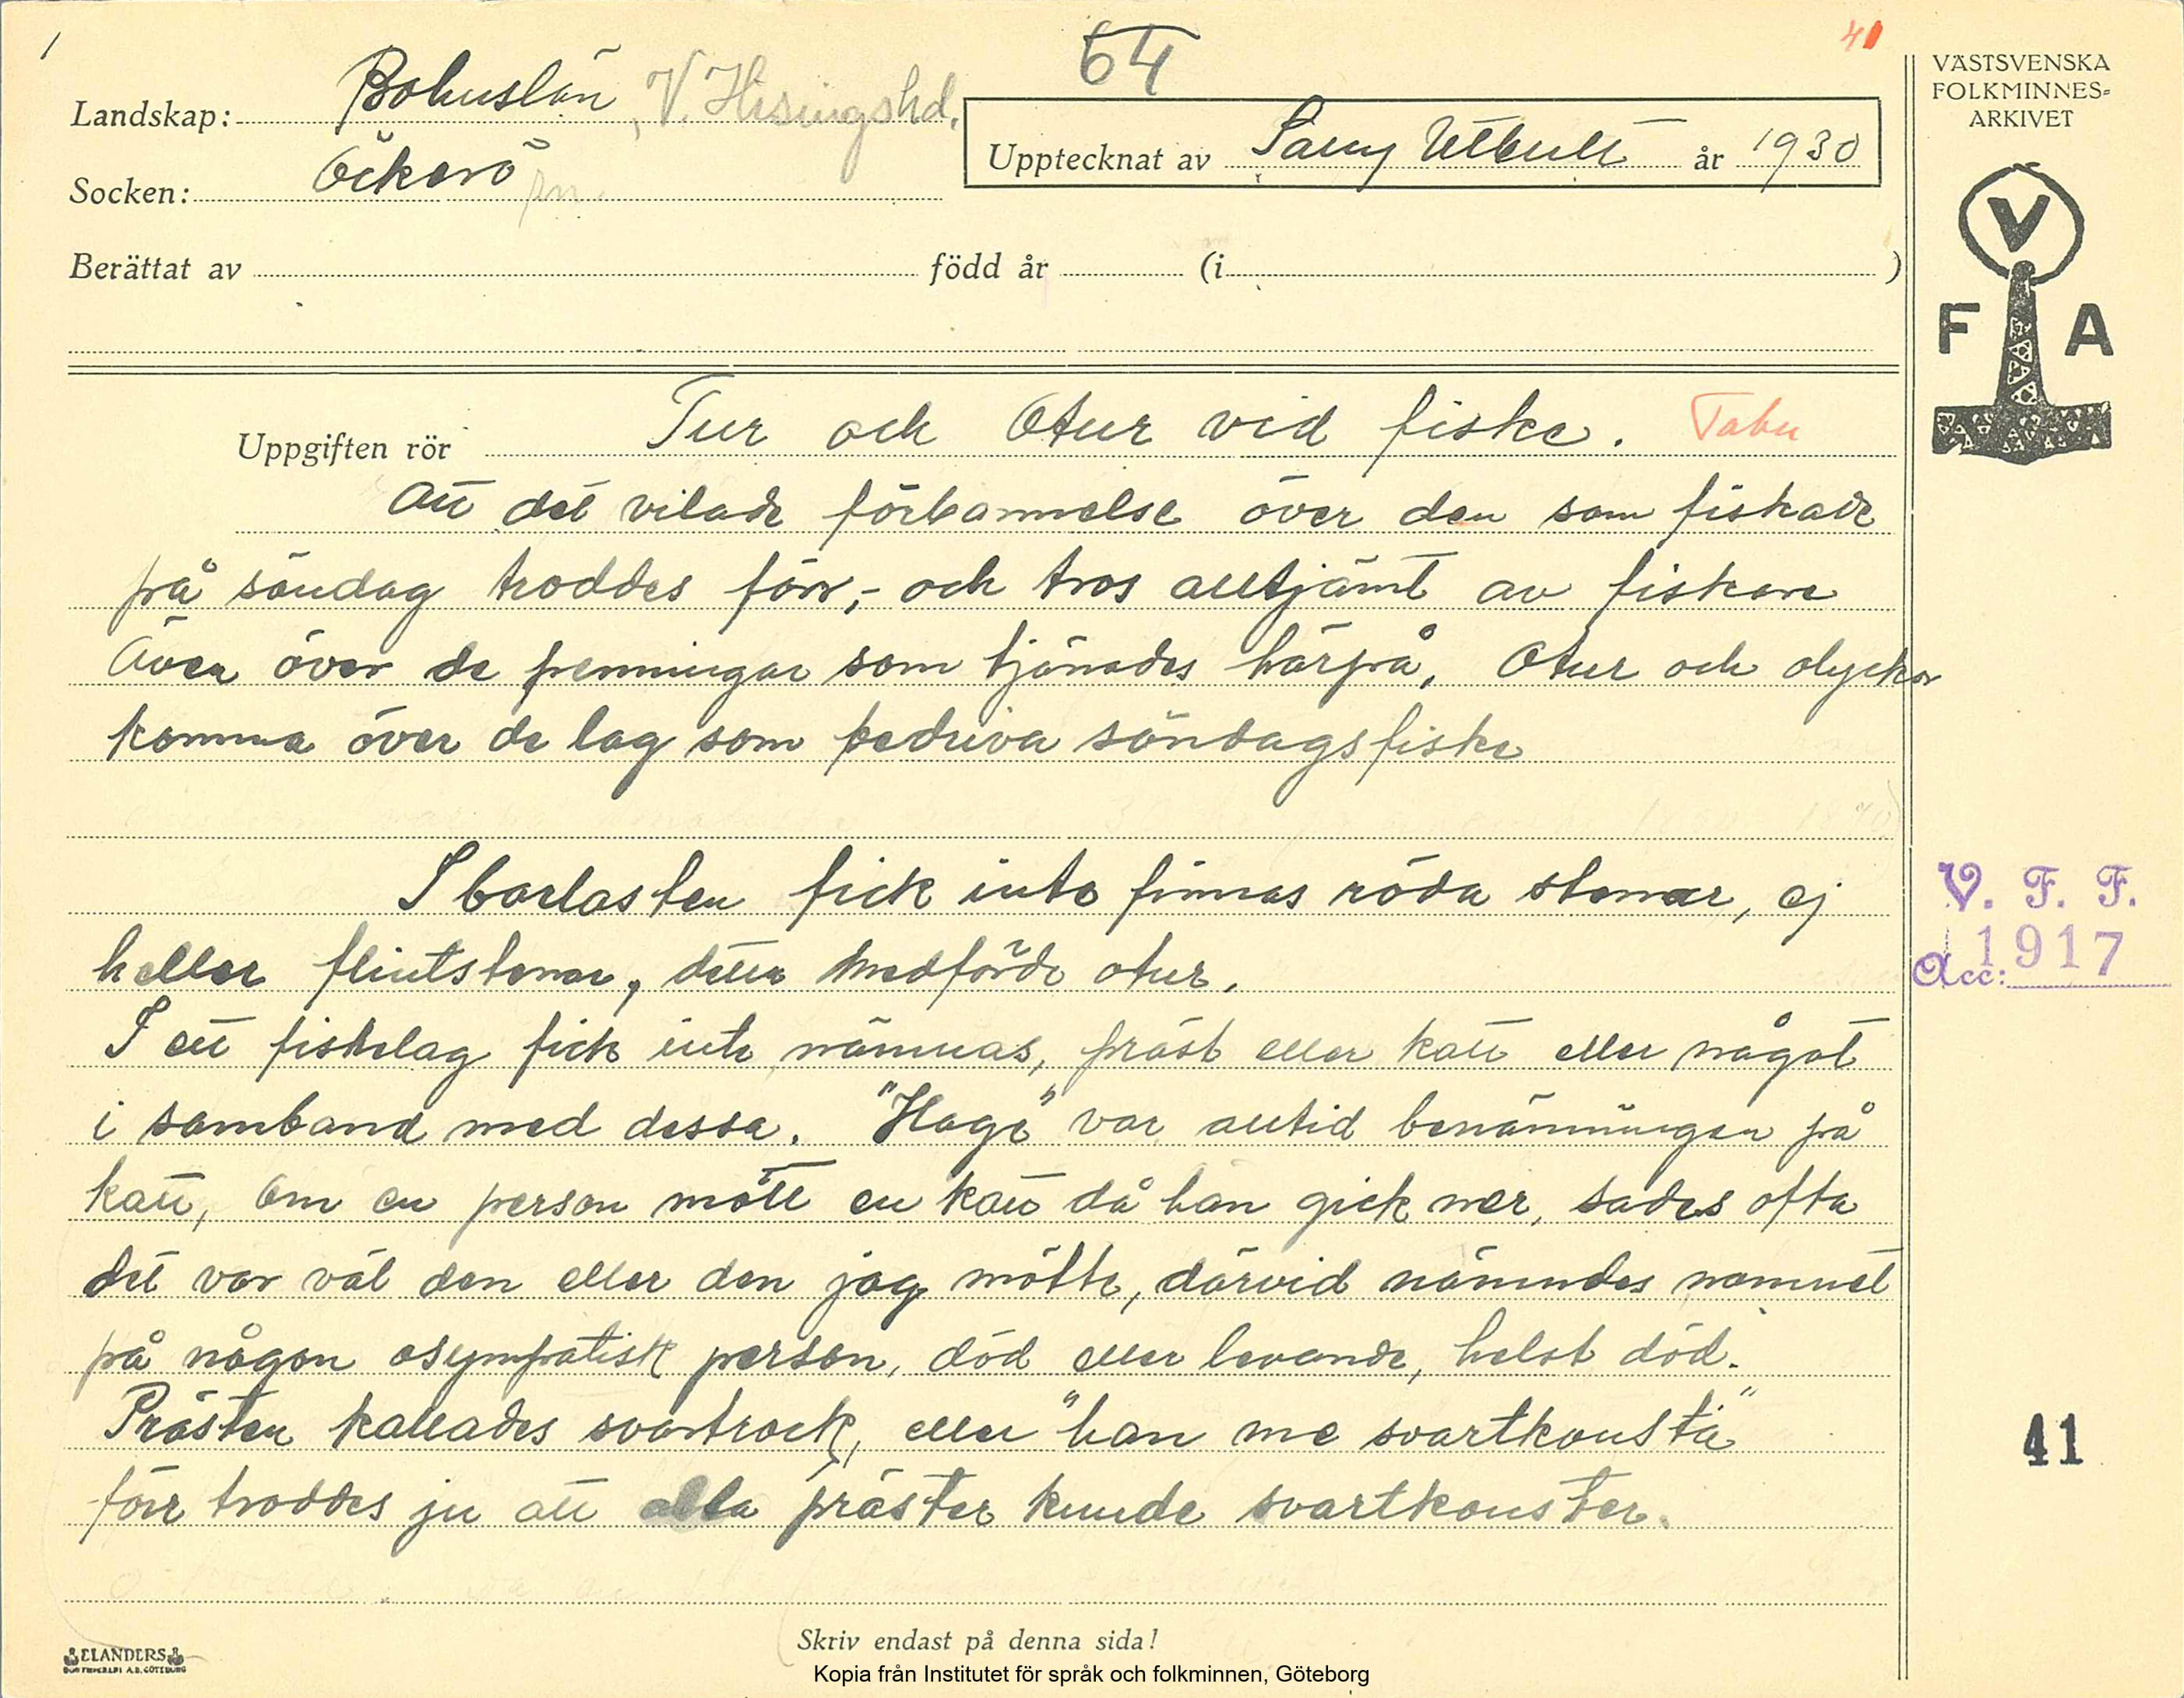 1
64
41
Landskap: Bohuslän, V. Hisingshd.
Socken: Öckerö sn.
Upptecknat av Samy Utbult år 1930
Berättat av född år (i )
VÄSTSVENSKA
FOLKMINNES=
ARKIVET
V
F A
Uppgiften rör Tur och Otur vid fiske. Tabu
Att det vilade förbannelse över den som fiskade
på söndag troddes förr,- och tros alltjämt av fiskare
Även över de penningar som tjänades härpå. Otur och olyckor
komma över de lag som bedriva söndagsfiske
I barlasten fick inte finnas röda stenar, ej
heller flintstenar, detta medförde otur.
I ett fiskelag fick inte nämnas, präst eller katt eller något
i samband med dessa. "Hage" var alltid benämningen på
katt, Om en person mött en katt då han gick ner, sades ofta
det var väl den eller den jag mötte, därvid nämndes namnet
på någon osympatisk person, död eller levande, helst död.
Prästen kallades svartrock, eller "han me svartkonsta"
förr troddes ju att alla präster kunde svartkonster.
V. F. F.
Acc: 1917
41
ELANDERS
Skriv endast på denna sida!
Kopia från Institutet för språk och folkminnen, Göteborg